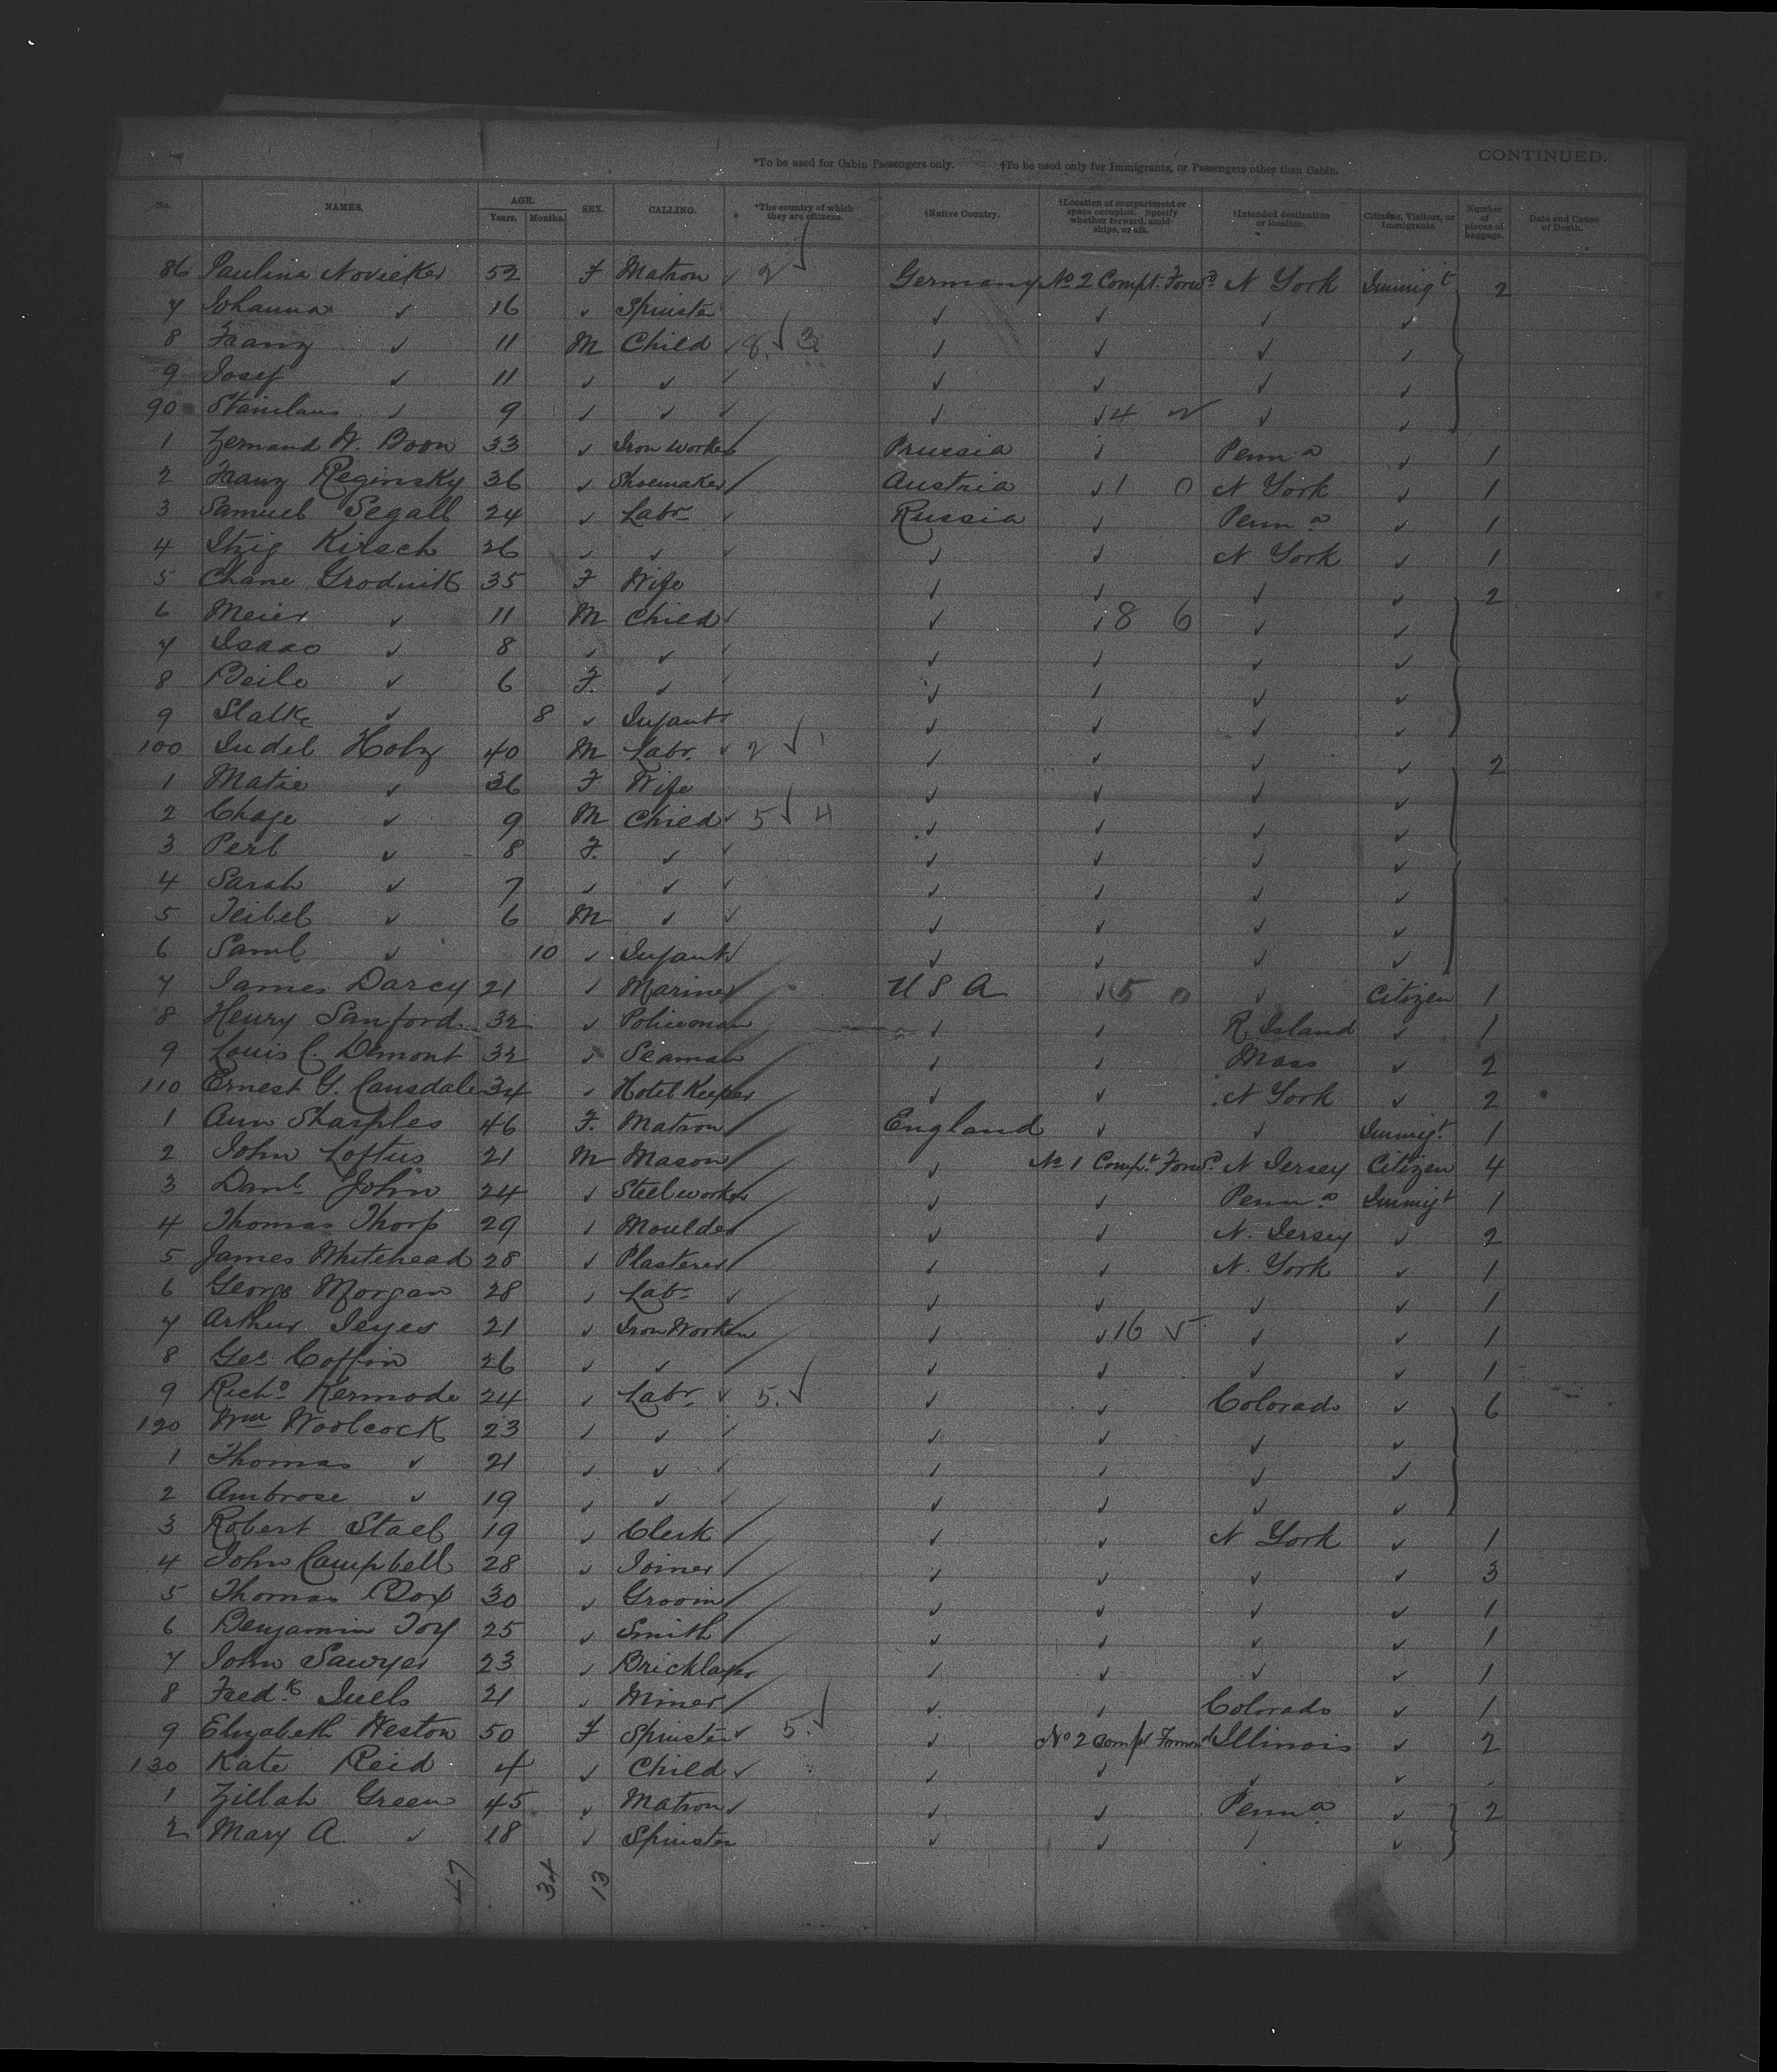 CONTINUED.
*To be used for Cabin Passengers only. †To be used only for Immigrants, or Passengers other than Cabin.
No. NAMES. AGE. Years. Months. SEX. CALLING. *The country of which they are citizens. †Native Country. †Location of compartment or space occupied. Specify whether forward, amidships, or aft. †Intended destination or location. Citizens, Visitors, or Immigrants. Number of pieces of baggage. Date and Cause of Death.
86 Paulina Novieker 52 F Matron ✓ 2 ✓ Germany No 2 Compt. Forwd. N York Immigt 2
7 Johanna ✓ 16 ✓ Spinster ✓ ✓ ✓ ✓
8 Franz ✓ 11 M Child ✓ 8. ✓ 3 ✓ ✓ ✓ ✓
9 Josef ✓ 11 ✓ ✓ ✓ ✓ ✓ ✓ ✓
90 Stanilaus ✓ 9 ✓ ✓ ✓ ✓ ✓ 4 ✓ ✓
1 Fernand W. Boon 33 ✓ Iron worker Prussia ✓ Penna ✓ 1
2 Franz Reginsky 36 ✓ Shoemaker Austria ✓ 1 0 N York ✓ 1
3 Samuel Segall 24 ✓ Labr ✓ Russia ✓ Penna ✓ 1
4 Itzig Kirsch 26 ✓ ✓ ✓ ✓ ✓ N York ✓ 1
5 Chane Grodnik 35 F Wife ✓ ✓ ✓ ✓ 2
6 Meier ✓ 11 M Child ✓ ✓ ✓ 8 6 ✓ ✓
7 Isaac ✓ 8 ✓ ✓ ✓ ✓ ✓ ✓ ✓
8 Beile ✓ 6 F. ✓ ✓ ✓ ✓ ✓ ✓
9 Slatke ✓ 8 ✓ Infant ✓ ✓ ✓ ✓ ✓
100 Judel Holz 40 M Labr. ✓ 2 ✓ 1 ✓ ✓ ✓ ✓ 2
1 Matie ✓ 36 F Wife ✓ ✓ ✓ ✓
2 Chaje ✓ 9 M Child ✓ 5 ✓ 4 ✓ ✓ ✓ ✓
3 Perl ✓ 8 F. ✓ ✓ ✓ ✓ ✓ ✓
4 Sarah ✓ 7 ✓ ✓ ✓ ✓ ✓ ✓ ✓
5 Teibel ✓ 6 M ✓ ✓ ✓ ✓ ✓ ✓
6 Saml ✓ 10 ✓ Infant ✓ ✓ ✓ ✓ ✓
7 James Darcy 21 ✓ Mariner U S A ✓ 5 0 ✓ Citizen 1
8 Henry Sanford 32 ✓ Policeman ✓ ✓ R. Island ✓ 1
9 Louis C. Demont 32 ✓ Seaman ✓ ✓ Mass ✓ 2
110 Ernest G. Cansdale 34 ✓ Hotel Keeper ✓ ✓ N York ✓ 2
1 Ann Sharples 46 F. Matron England ✓ ✓ Immigt. 1
2 John Loftus 21 M Mason ✓ No 1 Compt. Forwd. N Jersey Citizen 4
3 Danl John 24 ✓ Steel worker ✓ ✓ Penna Immigt 1
4 Thomas Thorp 29 ✓ Moulder ✓ ✓ N. Jersey ✓ 2
5 James Whitehead 28 ✓ Plasterer ✓ ✓ N. York ✓ 1
6 George Morgan 28 ✓ Labr ✓ ✓ ✓ ✓ ✓ 1
7 Arthur Jeyes 21 ✓ Iron Worker ✓ ✓ 16 5 ✓ ✓ 1
8 Geo. Coffin 26 ✓ ✓ ✓ ✓ ✓ ✓ 1
9 Richd Kermode 24 ✓ Labr ✓ 5. ✓ ✓ ✓ Colorado ✓ 6
120 Wm Woolcock 23 ✓ ✓ ✓ ✓ ✓ ✓ ✓
1 Thomas ✓ 21 ✓ ✓ ✓ ✓ ✓ ✓ ✓
2 Ambrose ✓ 19 ✓ ✓ ✓ ✓ ✓ ✓ ✓
3 Robert Stael 19 ✓ Clerk ✓ ✓ N York ✓ 1
4 John Campbell 28 ✓ Joiner ✓ ✓ ✓ ✓ 3
5 Thomas Box 30 ✓ Groom ✓ ✓ ✓ ✓ 1
6 Benjamin Toy 25 ✓ Smith ✓ ✓ ✓ ✓ 1
7 John Sawyer 23 ✓ Bricklayer ✓ ✓ ✓ ✓ 1
8 Fredk 21 ✓ Miner ✓ ✓ Colorado ✓ 1
9 Elizabeth Weston 50 F Spinster ✓ 5. ✓ ✓ No 2 Compt Forwd Illinois ✓ 2
130 Kate Reid 4 ✓ Child ✓ ✓ ✓ ✓ ✓
1 Zillah Green 45 ✓ Matron ✓ ✓ ✓ Penna ✓ 2
2 Mary A. ✓ 18 ✓ Spinster ✓ ✓ ✓ ✓
47 34 13